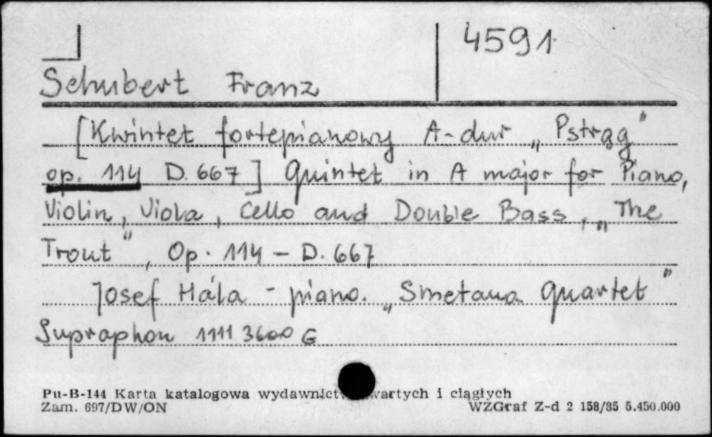 4591
Schubert Franz
[Kwintet fortepianowy A-dur „Pstrąg"
op. 114 D. 667] Quintet in A major for Piano,
Violin, Viola, Cello and Double Bass, „The
Trout", Op. 114 - D. 667
Josef Hála - piano. „Smetana Quartet"
Supraphon 1111 3600 G
Pu-B-144 Karta katalogowa wydawnict wartych i ciągłych
Zam. 697/DW/ON WZGraf Z-d 2 158/85 5.450.000